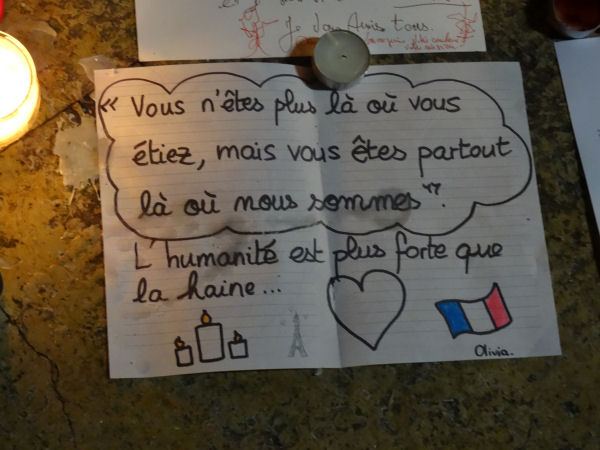 Je
tous.
« Vous n'êtes plus là où vous
étiez, mais vous êtes partout
là où nous sommes".
L'humanité est plus forte que
la haine...
Olivia.